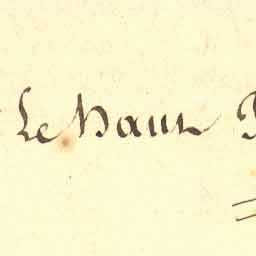 Le Haut